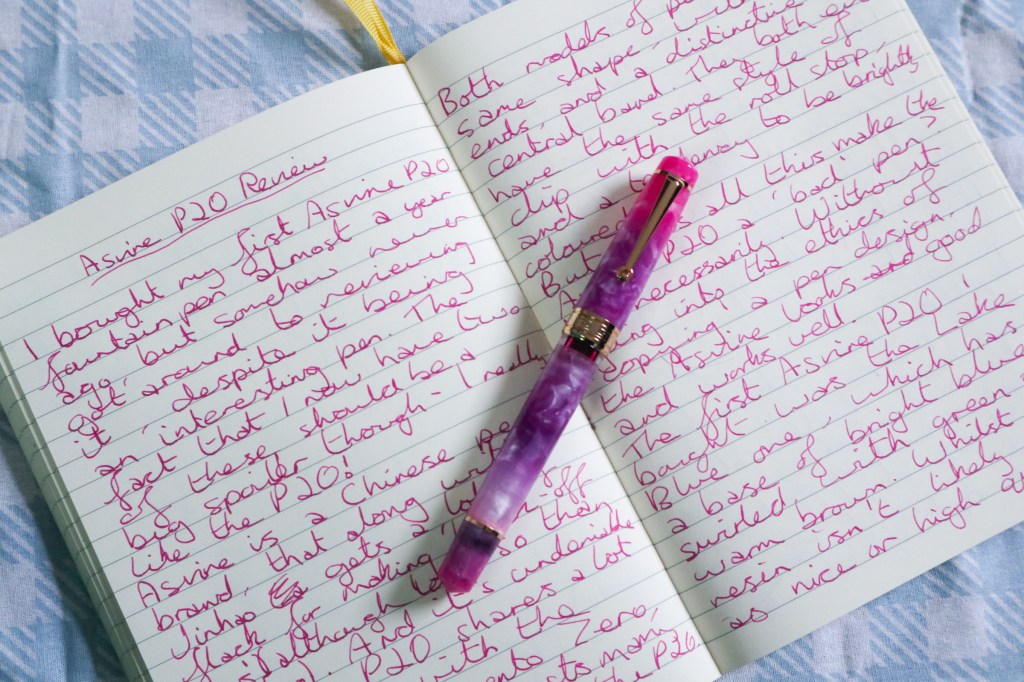 Asvine P20 Review
I bought my first Asvine P20
fountain pen almost a year
ago, but somehow never
got around to reviewing
it, despite it being
an interesting pen. The
fact that I now have two
of these should be a
big spoiler though - I really
like the P20!
Asvine is a Chinese pe
brand, that along with
Jinhao gets a lot off
flack for making
although so than
P20. And it's undeniable
P20 shares a lot
with the Zero,
ents to mom
the P26.
Both models of pe
same shape, with
ends, and a distinctive
central band. They both even
have the same style of
clip with the roll stop,
and a tendency to be brightly
coloured.
But all this make the
P20 a 'bad' pen,
necessarily. Without
going into the ethics of
copying a pen design,
the Asvine looks and good
and works well.
The first Asvine P20 I
bought was the Lake
Blue one, which has
a base of bright blue
swirled with green
warm brown. Whilst
resin isn't likely
as nice or high